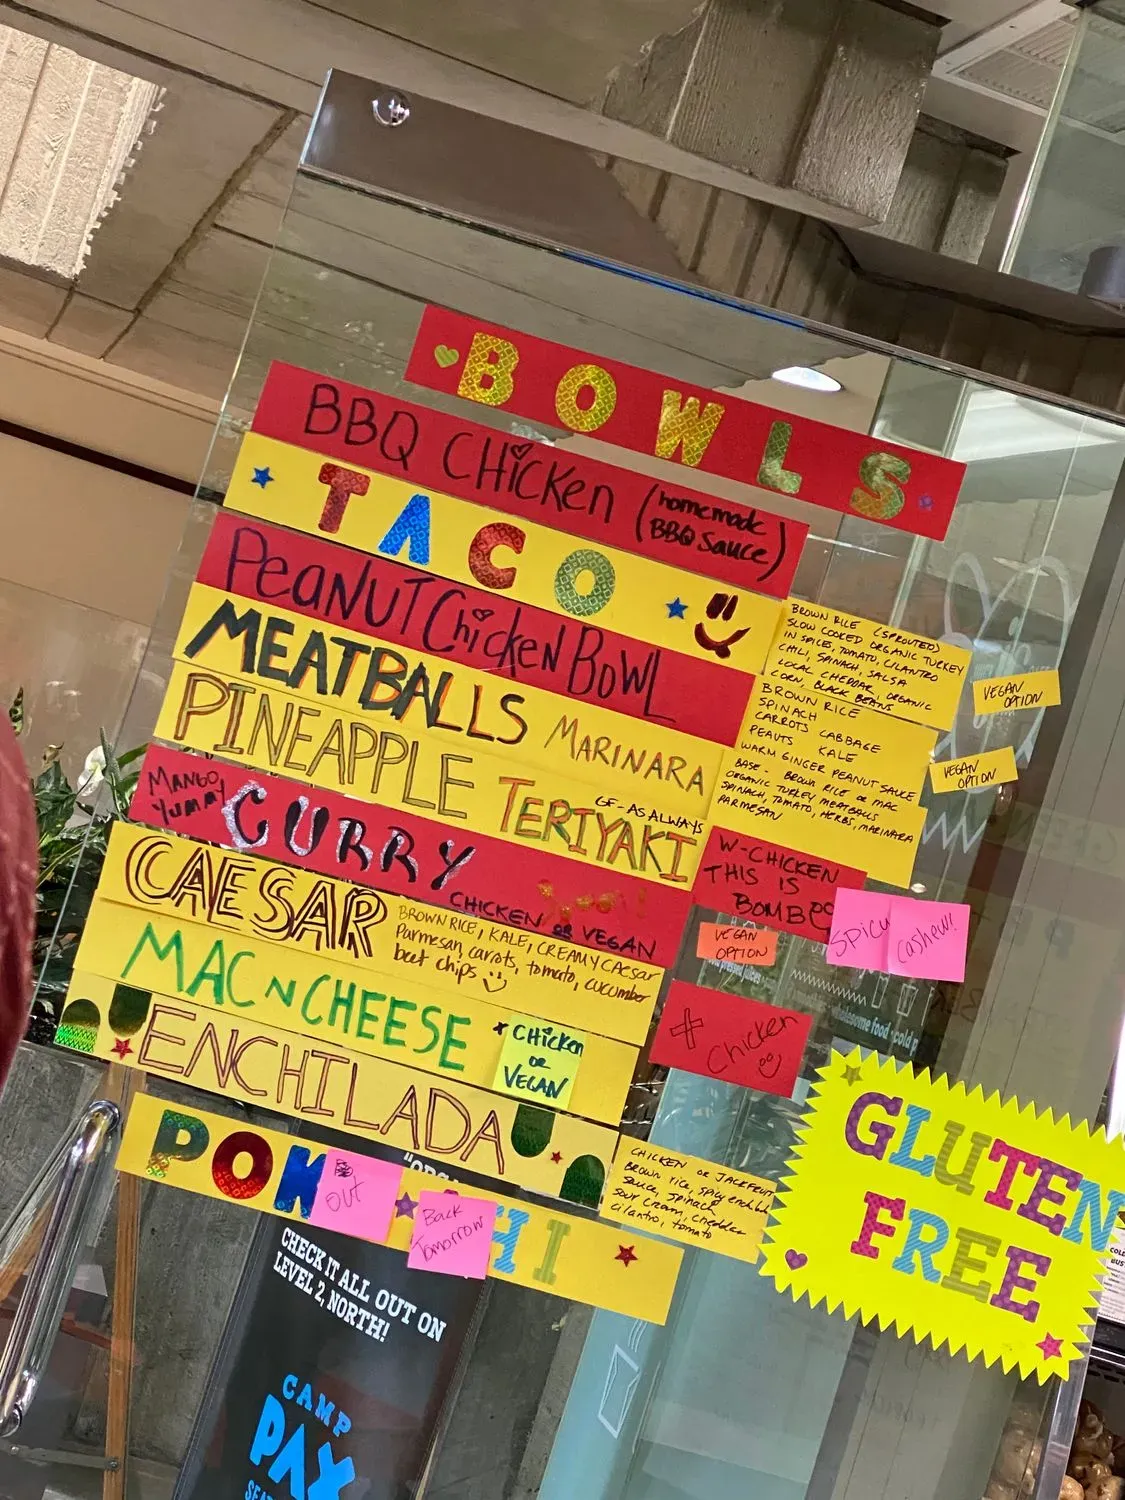 BOWLS
BBQ CHicKen (homemade
BBQ Sauce)
TACO
BROWN RICE (SPROUTED)
SLOW COOKED ORGANIC TURKEY
IN SPICES, TOMATO, CILANTRO
CHILI, SPINACH, SALSA
LOCAL CHEDDAR, ORGANIC
CORN, BLACK BEANS
VEGAN
OPTION
PeANUT ChickeN BOWL
BROWN RICE
SPINACH
CARROTS CABBAGE
PEAUTS KALE
WARM GINGER PEANUT SAUCE
VEGAN
OPTION
MEATBALLS MARINARA
BASE - BROWN RICE OR MAC
ORGANIC TURKEY MEATBALLS
SPINACH, TOMATO, HERBS, MARINARA
PARMESAN
PINEAPPLE TERIYAKI
GF-AS ALWAYS
W-CHICKEN
THIS IS
BOMB
VEGAN
OPTION
MANGO
YUMMY
CURRY
CHICKEN OR VEGAN
Spicy
Cashew!
CAESAR
BROWN RICE, KALE, CREAMY CAESAR
Parmesan, carrots, tomato, cucumber
beet chips
+ Chicken
MAC N CHEESE
* CHicKen
OR
VEGAN
ENCHILADA
CHICKEN OR JACKFRUIT
BROWN RICE, SPICY
SAUCE, SPINACH
SOUR CREAM, CHEDDAR
CILANTRO, TOMATO
POW HI
OUT
Back
Tomorrow
GLUTEN
FREE
CHECK IT ALL OUT ON
LEVEL 2, NORTH!
CAMP
PAX
wholesome food • cold p